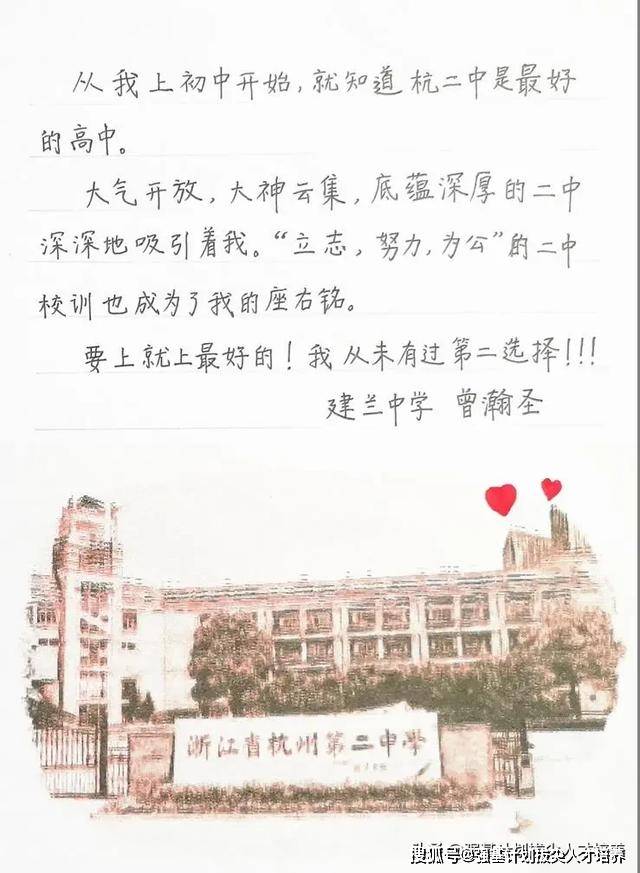 从我上初中开始，就知道杭二中是最好
的高中。
大气开放，大神云集，底蕴深厚的二中
深深地吸引着我。“立志，努力，为公”的二中
校训也成为了我的座右铭。
要上就上最好的！我从未有过第二选择！！！
建兰中学 曾瀚圣
浙江省杭州第二中学
搜狐号@强基计划拔尖人才培养